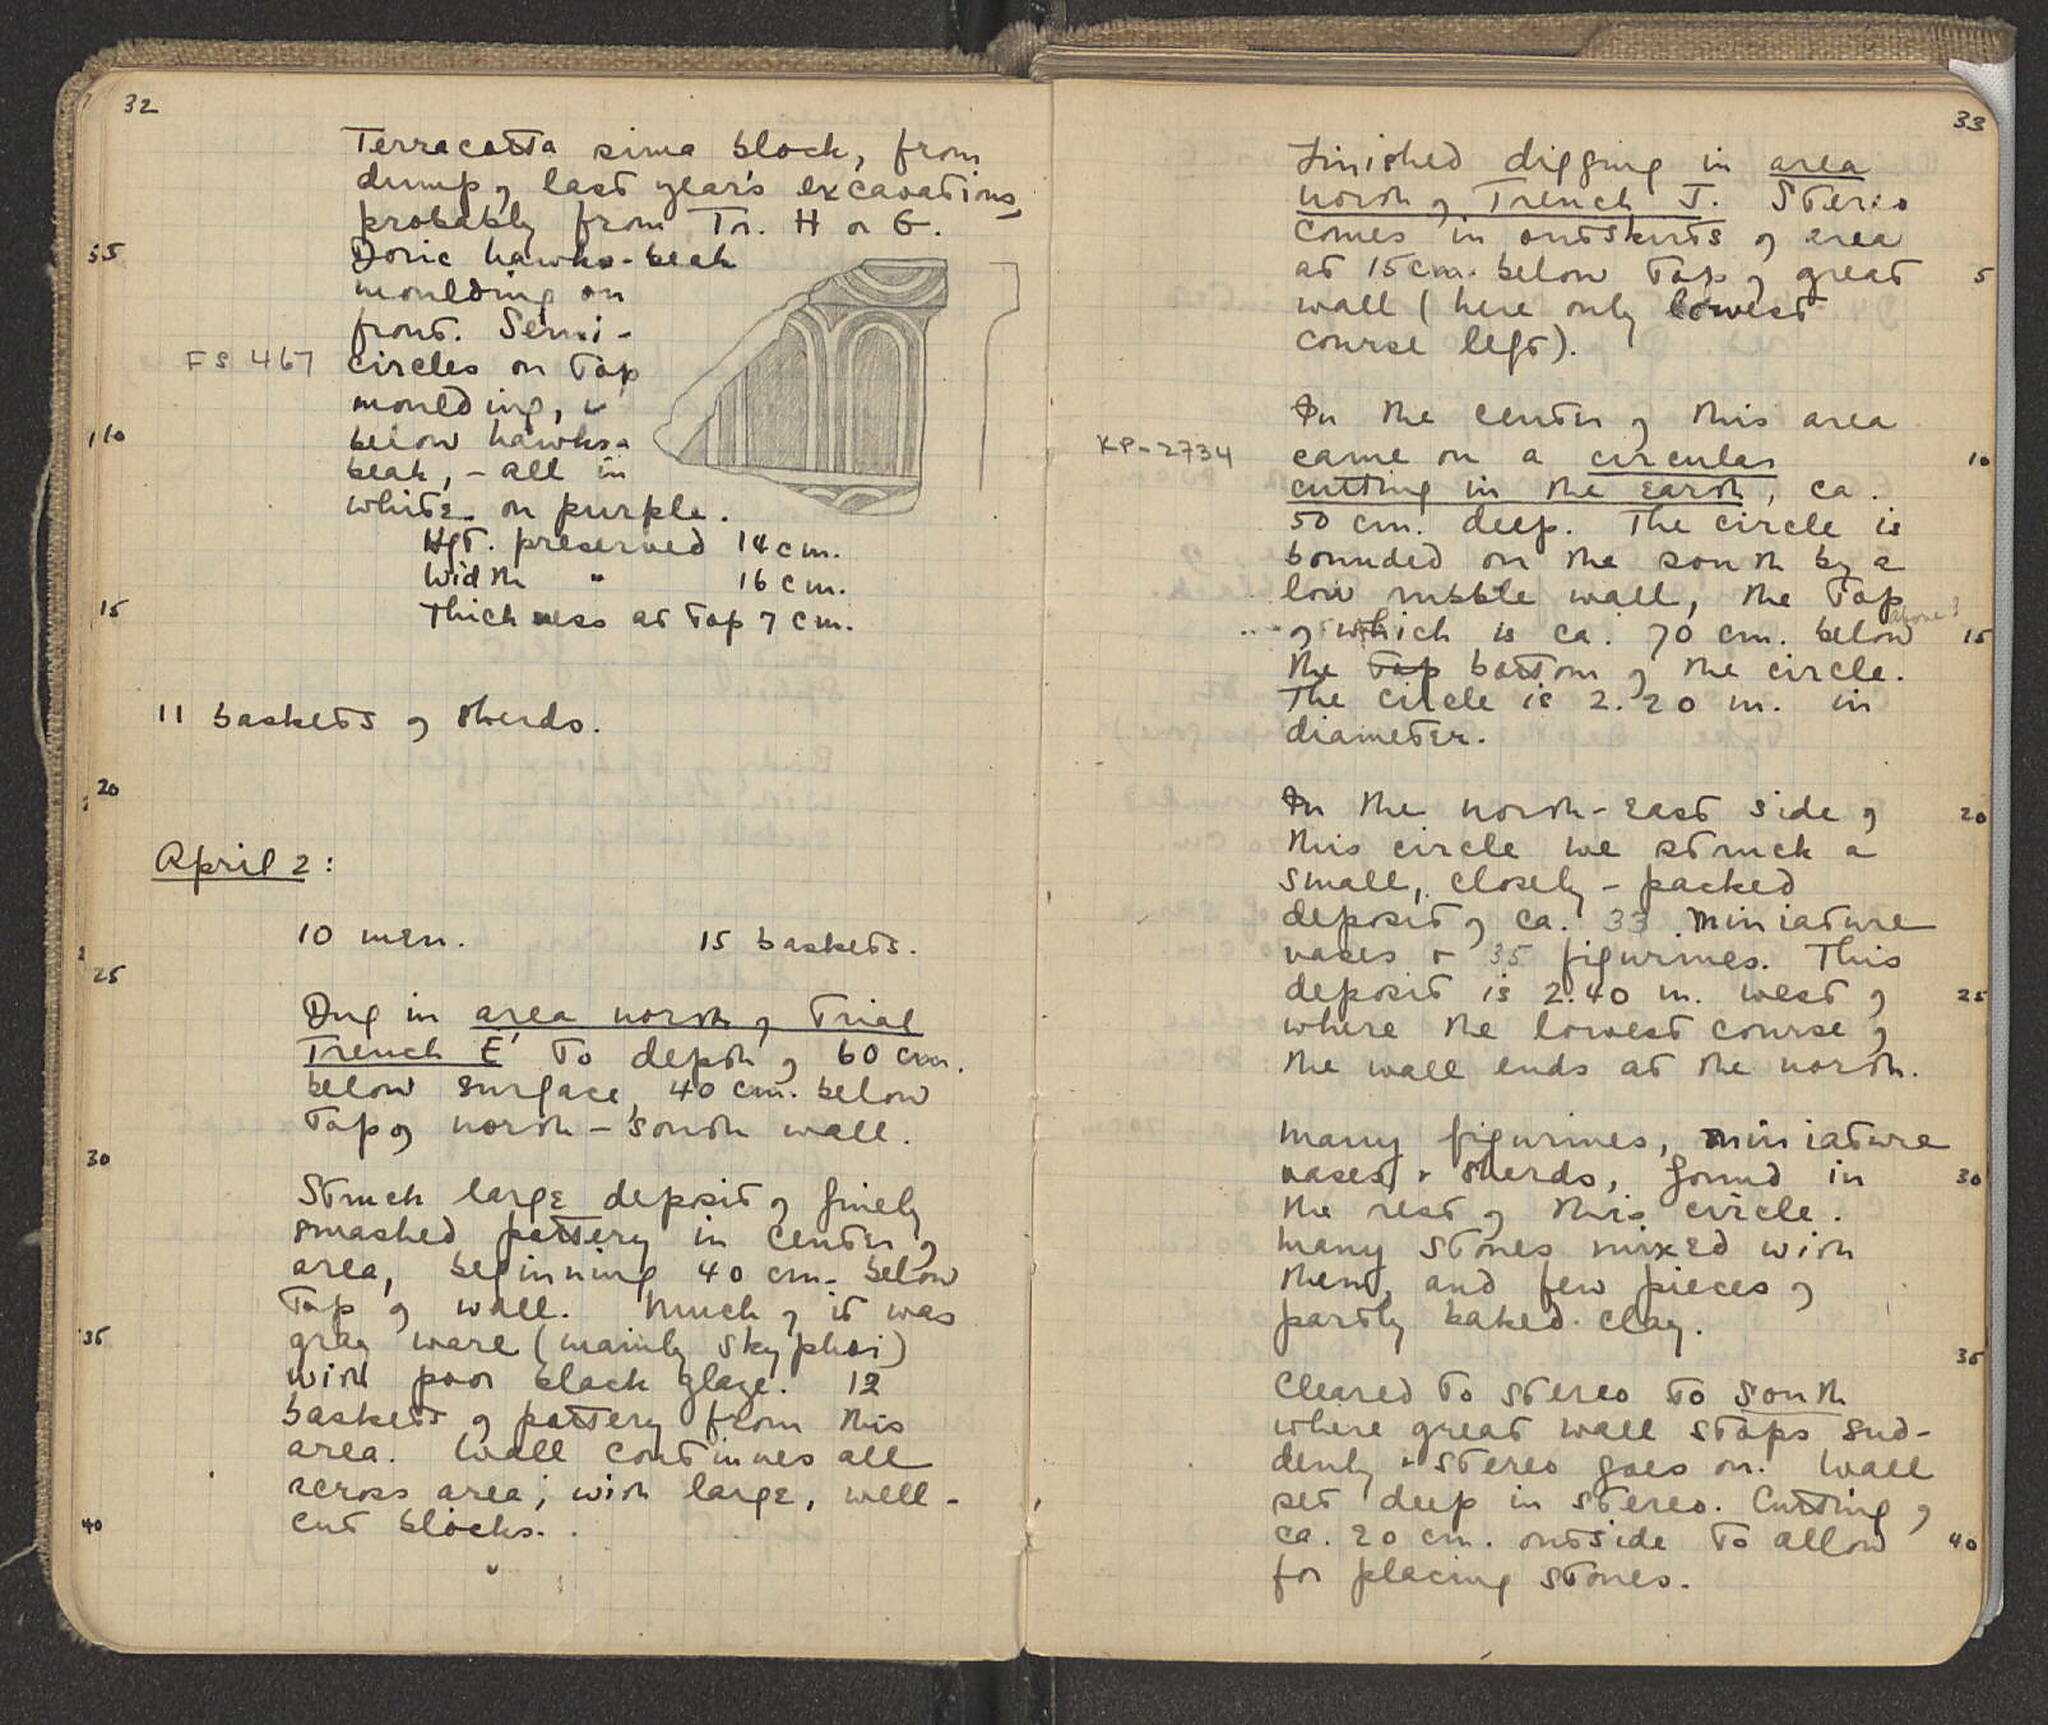 32
Terracotta sima block, from
dump of last year's excavations,
probably from Tr. H or G.
5
Doric hawks-beak
moulding on
front. Semi-
FS 467
circles on top
moulding, &
10
below hawks-
beak, - all in
white on purple.
Hgt. preserved 14 cm.
Width " 16 cm.
15
Thickness at top 7 cm.
11 baskets of sherds.
20
April 2:
10 men. 15 baskets.
25
Dug in area north of Trial
Trench E' to depth of 60 cm.
below surface, 40 cm. below
top of north-south wall.
30
Struck large deposit of finely
smashed pottery in center of
area, beginning 40 cm. below
top of wall. Much of it was
35
gray ware (mainly skyphoi)
with poor black glaze. 12
baskets of pottery from this
area. Wall continues all
across area, with large, well-
40
cut blocks.
33
Finished digging in area
north of Trench J. Stereo
comes in outskirts of area
at 15 cm. below top of great
5
wall (here only lowest
course left).
In the center of this area
KP-2734
came on a circular
10
cutting in the earth, ca.
50 cm. deep. The circle is
bounded on the south by a
low rubble wall, the top
above?
of which is ca. 70 cm. below
15
the top bottom of the circle.
The circle is 2.20 m. in
diameter.
In the north-east side of
20
this circle we struck a
small, closely-packed
deposit of ca. 33 miniature
vases + 35 figurines. This
deposit is 2.40 m. west of
25
where the lowest course of
the wall ends at the north.
Many figurines, miniature
vases, + sherds, found in
30
the rest of this circle.
Many stones mixed with
them, and few pieces of
partly baked clay.
35
Cleared to stereo to south
where great wall stops sud-
denly & stereo goes on. Wall
set deep in stereo. Cutting of
ca. 20 cm. outside to allow
40
for placing stones.